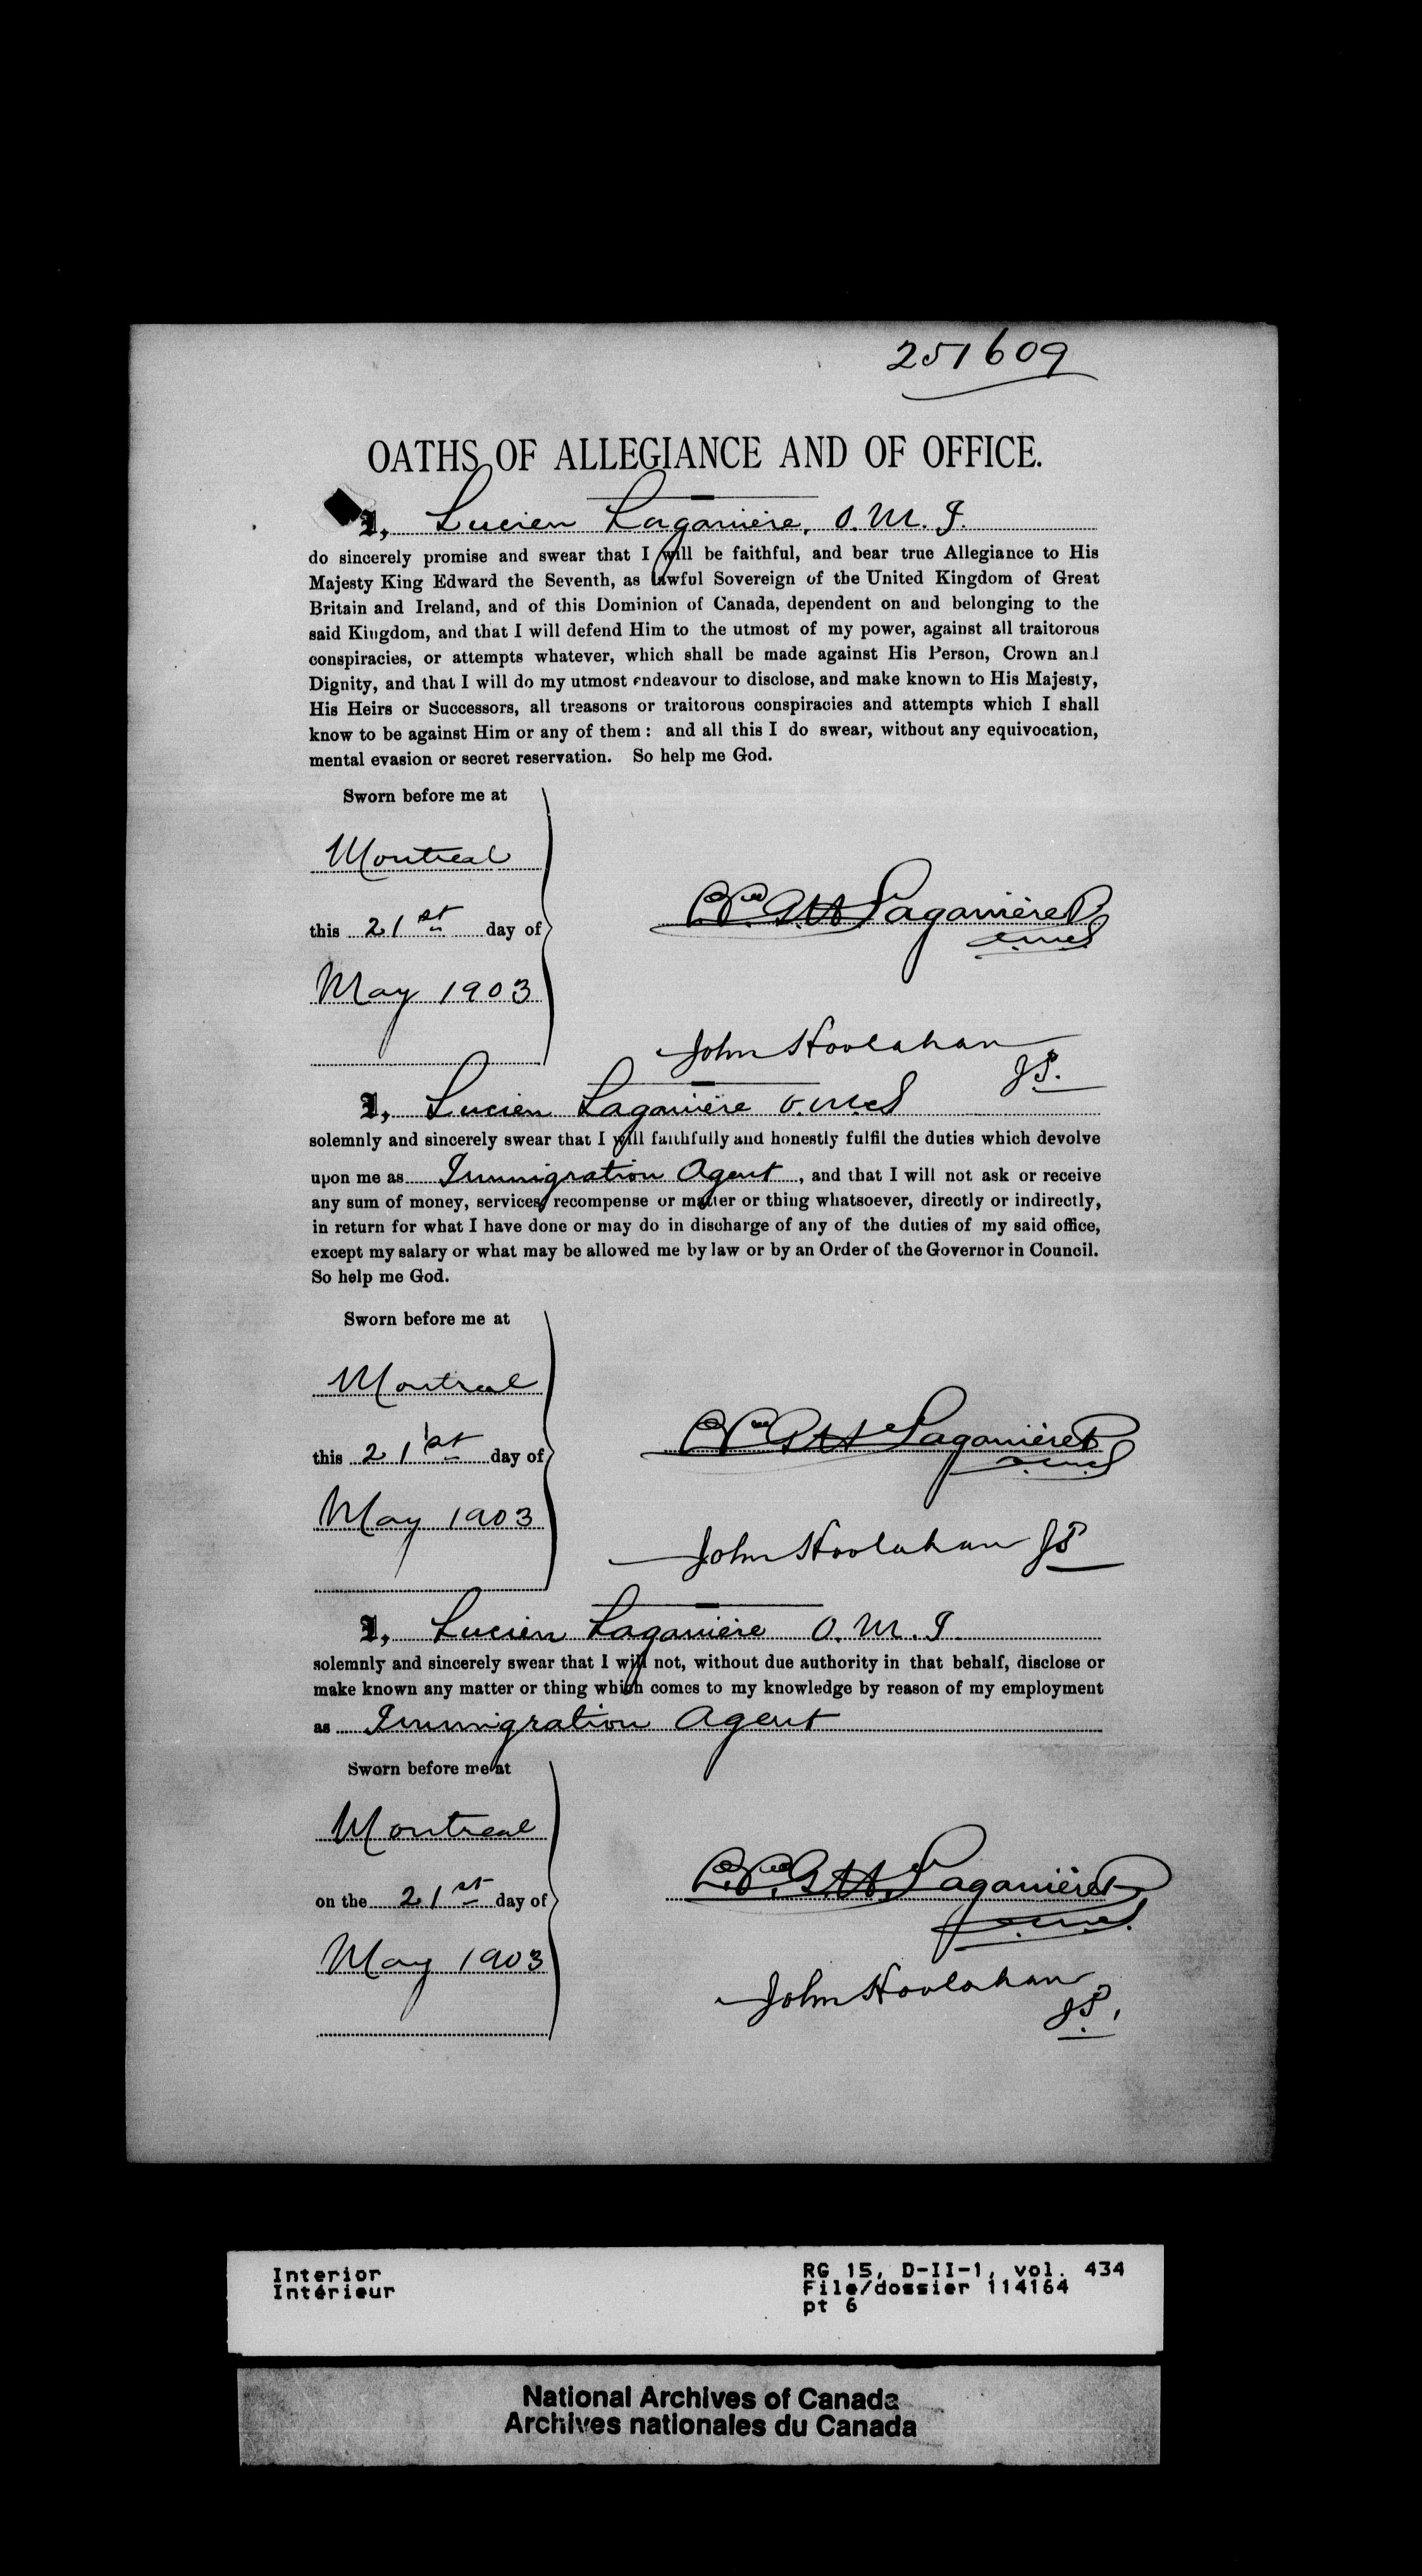 251609
OATHS OF ALLEGIANCE AND OF OFFICE.
I, Lucien Laganière, O. M. I.
do sincerely promise and swear that I will be faithful, and bear true Allegiance to His
Majesty King Edward the Seventh, as lawful Sovereign of the United Kingdom of Great
Britain and Ireland, and of this Dominion of Canada, dependent on and belonging to the
said Kingdom, and that I will defend Him to the utmost of my power, against all traitorous
conspiracies, or attempts whatever, which shall be made against His Person, Crown and
Dignity, and that I will do my utmost endeavour to disclose, and make known to His Majesty,
His Heirs or Successors, all treasons or traitorous conspiracies and attempts which I shall
know to be against Him or any of them: and all this I do swear, without any equivocation,
mental evasion or secret reservation. So help me God.
Sworn before me at
Montreal
this 21st day of
May 1903
Laganière
o.m.i.
John Hoolahan
J P.
I, Lucien Laganière o.m.i
solemnly and sincerely swear that I will faithfully and honestly fulfil the duties which devolve
upon me as Immigration Agent, and that I will not ask or receive
any sum of money, services, recompense or matter or thing whatsoever, directly or indirectly,
in return for what I have done or may do in discharge of any of the duties of my said office,
except my salary or what may be allowed me by law or by an Order of the Governor in Council.
So help me God.
Sworn before me at
Montreal
this 21st day of
May 1903
Laganière
o.m.i.
John Hoolahan J P
I, Lucien Laganière O. M. I.
solemnly and sincerely swear that I will not, without due authority in that behalf, disclose or
make known any matter or thing which comes to my knowledge by reason of my employment
as Immigration Agent
Sworn before me at
Montreal
on the 21st day of
May 1903
Laganière
o.m.i.
John Hoolahan
J P.
Interior
Intérieur
RG 15, D-II-1, vol. 434
File/dossier 114164
pt 6
National Archives of Canada
Archives nationales du Canada